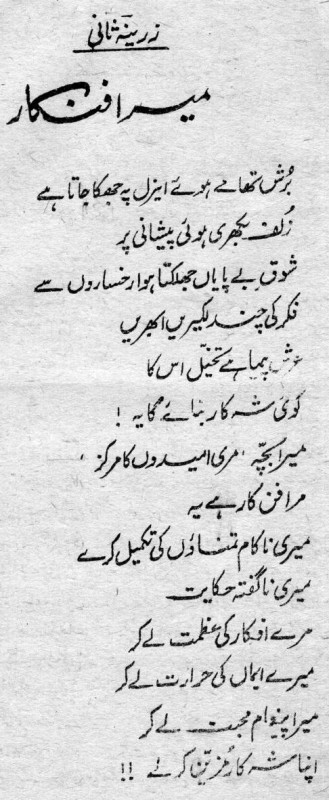 زرینہ ثانی
میرا فنکار
بُرش تھامے ہوئے ایزل پہ جھکا جاتا ہے
زُلف بکھری ہوئی پیشانی پر
شوقِ بے پایاں جھلکتا ہوا رخساروں سے
فکر کی چند لکیریں ابھریں
عرش پیما ہے تخیّل اس کا
کوئی شہ کار بنائے گا یہ !
میرا بچّہ ' مری امیدوں کا مرکز '
مرا فن کار ہے یہ
میری ناکام تمناؤں کی تکمیل کرے
میری ناگفتہ حکایت
مرے افکار کی عظمت لے کر
میرے ایماں کی حرارت لے کر
میرا پیغامِ محبت لے کر
اپنا شہ کار مُزیّن کر لے !!